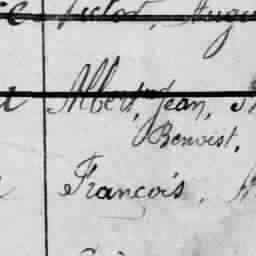 Victor, Augu
Albert, Jean,
Benoist,
François,